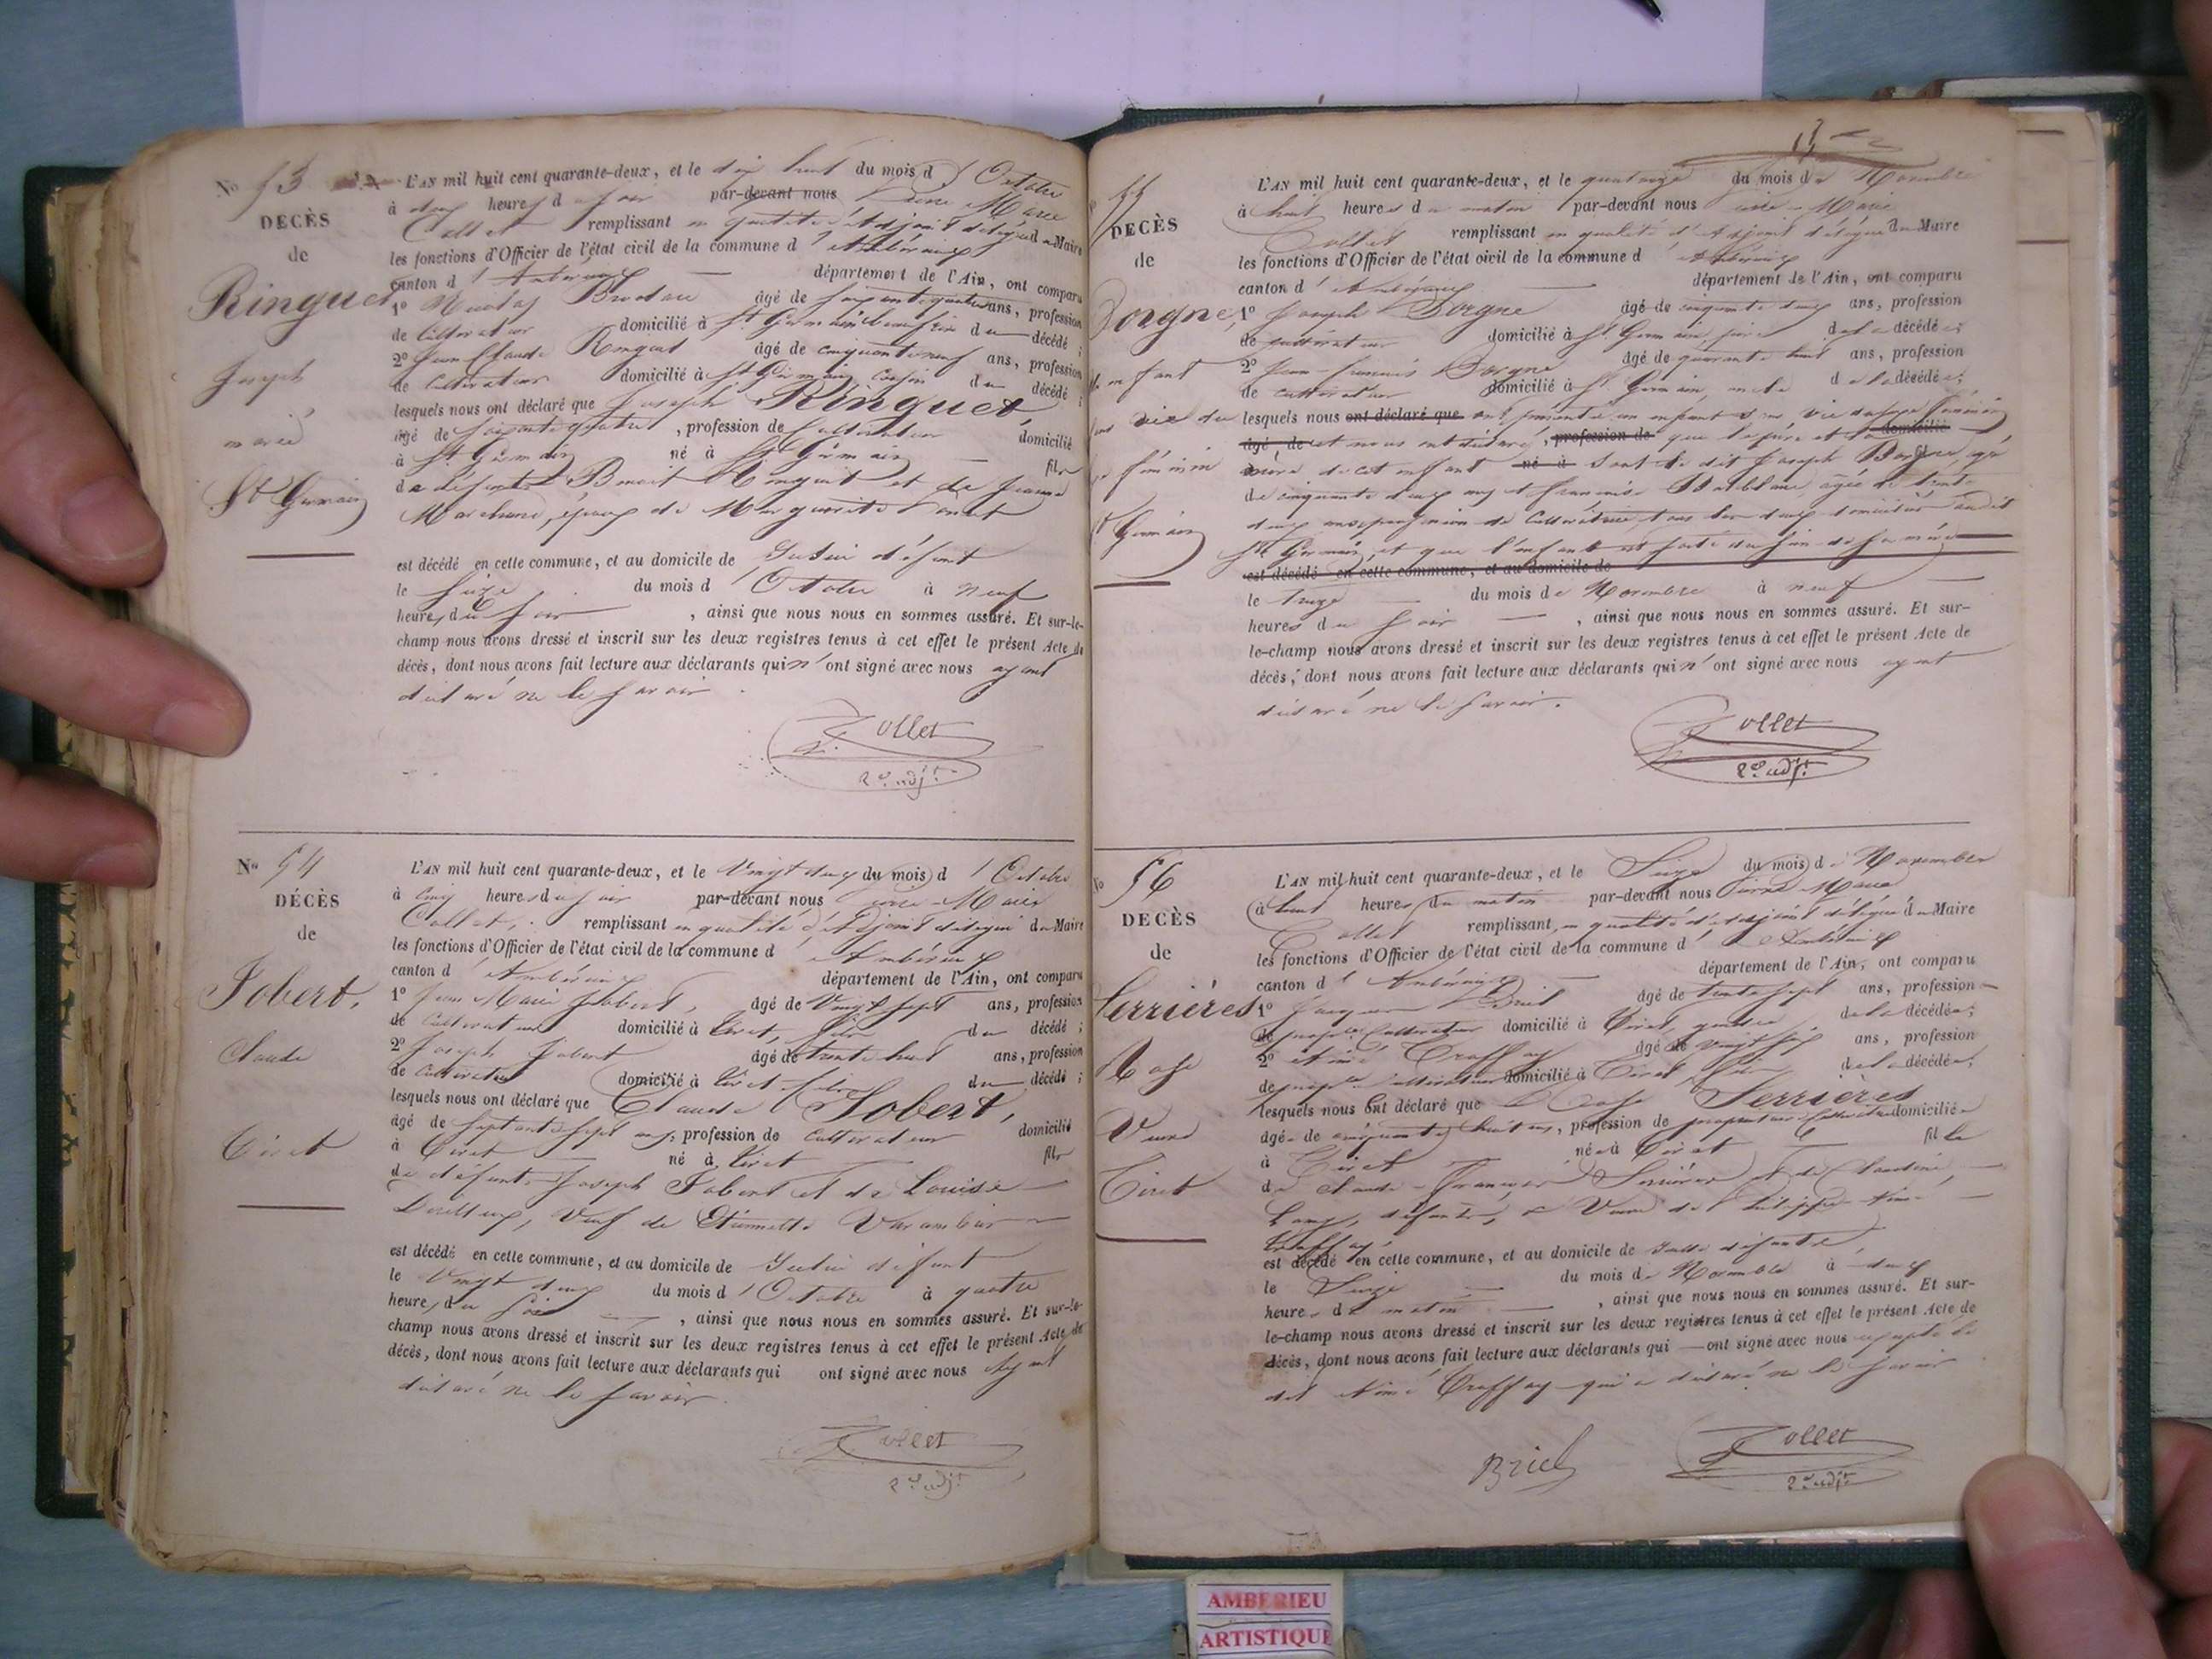 No 53
DECÈS
de
Ringuet
Joseph
marié
St Germain
L'AN mil huit cent quarante-deux, et le dix huit du mois d'Octobre
à deux heures du soir par-devant nous Pierre Marie
Collet remplissant en qualité d'Adjoint délégué du Maire
les fonctions d'Officier de l'état civil de la commune d'Ambérieux
canton d'Ambérieux — département de l'Ain, ont comparu
1o Nicolas âgé de soixante quatre ans, profession
de Cultivateur domicilié à St Germain du décédé ;
2o Jean Claude Ringuet âgé de cinquante neuf ans, profession
de Cultivateur domicilié à St Germain, Cousin du décédé ;
lesquels nous ont déclaré que Joseph Ringuet
âgé de soixante quatre, profession de Cultivateur domicilié
à St Germain né à St Germain — fils
de défunts Benoit Ringuet et de Jeanne
Marchand, époux de Marguerite
est décédé en cette commune, et au domicile de Sudit défunt
le seize du mois d'Octobre à neuf
heures du soir —, ainsi que nous nous en sommes assuré. Et sur-le-
champ nous avons dressé et inscrit sur les deux registres tenus à cet effet le présent Acte de
décès, dont nous avons fait lecture aux déclarants qui n'ont signé avec nous ayant
déclaré ne le savoir.
Collet
2e adjt
No 54
DÉCÈS
de
Jobert,
Claude
Tiret
L'AN mil huit cent quarante-deux, et le Vingt deux du mois d'Octobre
à cinq heures du soir par-devant nous Pierre-Marie
Collet, remplissant en qualité d'Adjoint délégué du Maire
les fonctions d'Officier de l'état civil de la commune d'Ambérieux
canton d'Ambérieux département de l'Ain, ont comparu
1o Jean Marie Jobert, âgé de Vingt sept ans, profession
de Cultivateur domicilié à Tiret, fils du décédé ;
2o Joseph Jobert âgé de trente huit ans, profession
de Cultivateur domicilié à Tiret fils du décédé ;
lesquels nous ont déclaré que Claude Jobert,
âgé de septante sept ans, profession de Cultivateur domicilié
à Tiret né à Tiret fils
de défunts Joseph Jobert et de Louise
Veuf de Etiennette Varambier
est décédé en cette commune, et au domicile de Sudit défunt
le Vingt deux du mois d'Octobre à quatre
heures du soir —, ainsi que nous nous en sommes assuré. Et sur-le-
champ nous avons dressé et inscrit sur les deux registres tenus à cet effet le présent Acte de
décès, dont nous avons fait lecture aux déclarants qui ont signé avec nous Ayant
déclaré ne le savoir.
Collet
2e adjt
55
DECÈS
de
Borgne,
enfant
sans vie du
sexe féminin
St Germain
L'AN mil huit cent quarante-deux, et le quatorze du mois de Novembre
à huit heures du matin par-devant nous Pierre-Marie
Collet remplissant en qualité d'Adjoint délégué du Maire
les fonctions d'Officier de l'état civil de la commune d'Ambérieux
canton d'Ambérieux — département de l'Ain, ont comparu
1o Joseph Borgne âgé de cinquante deux ans, profession
de cultivateur domicilié à St Germain, père de la décédée ;
2o Jean-François Borgne âgé de quarante huit ans, profession
de cultivateur domicilié à St Germain, oncle de la décédée ;
lesquels nous ont déclaré que ont présenté un enfant sans vie du sexe féminin
âgé, de et nous ont déclaré, profession de que le père et la domicilié
mère de cet enfant né à sont le dit Joseph Borgne, âgé
de cinquante deux ans et françoise âgée de trente
deux ans, profession de Cultivatrice, tous les deux domiciliés audit
St Germain, et que l'enfant est sorti du sein de sa mère
est décédé en cette commune, et au domicile de
le treize — du mois de Novembre à neuf —
heures du soir —, ainsi que nous nous en sommes assuré. Et sur-
le-champ nous avons dressé et inscrit sur les deux registres tenus à cet effet le présent Acte de
décès, dont nous avons fait lecture aux déclarants qui n'ont signé avec nous ayant
déclaré ne le savoir.
Collet
2e adjt
No 56
DECÈS
de
Serrières
Rose
Veuve
Tiret
L'AN mil huit cent quarante-deux, et le Seize du mois de Novembre
à huit heures du matin par-devant nous Pierre Marie
Collet remplissant, en qualité d'Adjoint délégué du Maire
les fonctions d'Officier de l'état civil de la commune d'Ambérieux
canton d'Ambérieux — département de l'Ain, ont comparu
1o Jacques Briel âgé de trente sept ans, profession
de propre Cultivateur domicilié à Tiret, gendre de la décédée ;
2o Aimé Traffay âgé de vingt six ans, profession
de propre Cultivateur domicilié à Tiret, fils de la décédée ;
lesquels nous ont déclaré que Rose Serrières
âgée de cinquante huit ans, profession de propriétaire Cultivatrice domiciliée
à Tiret — née à Tiret — fille
de Claude-François Serrières et de Claudine
défunts, Veuve de Philippe-Aimé
Traffay
est décédé en cette commune, et au domicile de défunte
le Seize — du mois de Novembre à deux
heures du matin —, ainsi que nous nous en sommes assuré. Et sur-
le-champ nous avons dressé et inscrit sur les deux registres tenus à cet effet le présent Acte de
décès, dont nous avons fait lecture aux déclarants qui — ont signé avec nous excepté le
dit Aimé Traffay qui a déclaré ne le savoir
Briel
Collet
2e adjt
AMBERIEU
ARTISTIQUE